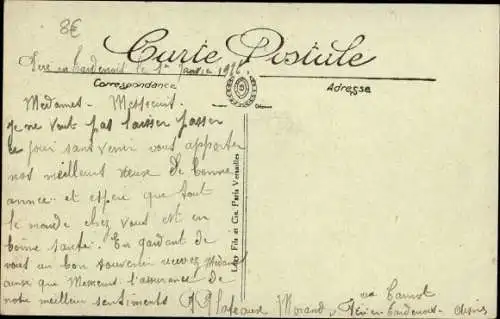 8€
Carte Postale
Fere en Tardenois le 1er Janvier 1916
Correspondance
Adresse
Medames - Messieurs.
Je ne veut pas laisser passer
ce jour sant venir vous apporter
nos meilleurs veux de bonne
annee et esperé que tout
le monde chez vous est en
bonne santé. En gardant de
vous un bon souvenir recevez Medames
ainsi que Messieurs l'assurance de
notre meilleur sentiments
Morand rue Carnot
Fère en Tardenois Aisne
Lévy Fils et Cie, Paris Versailles